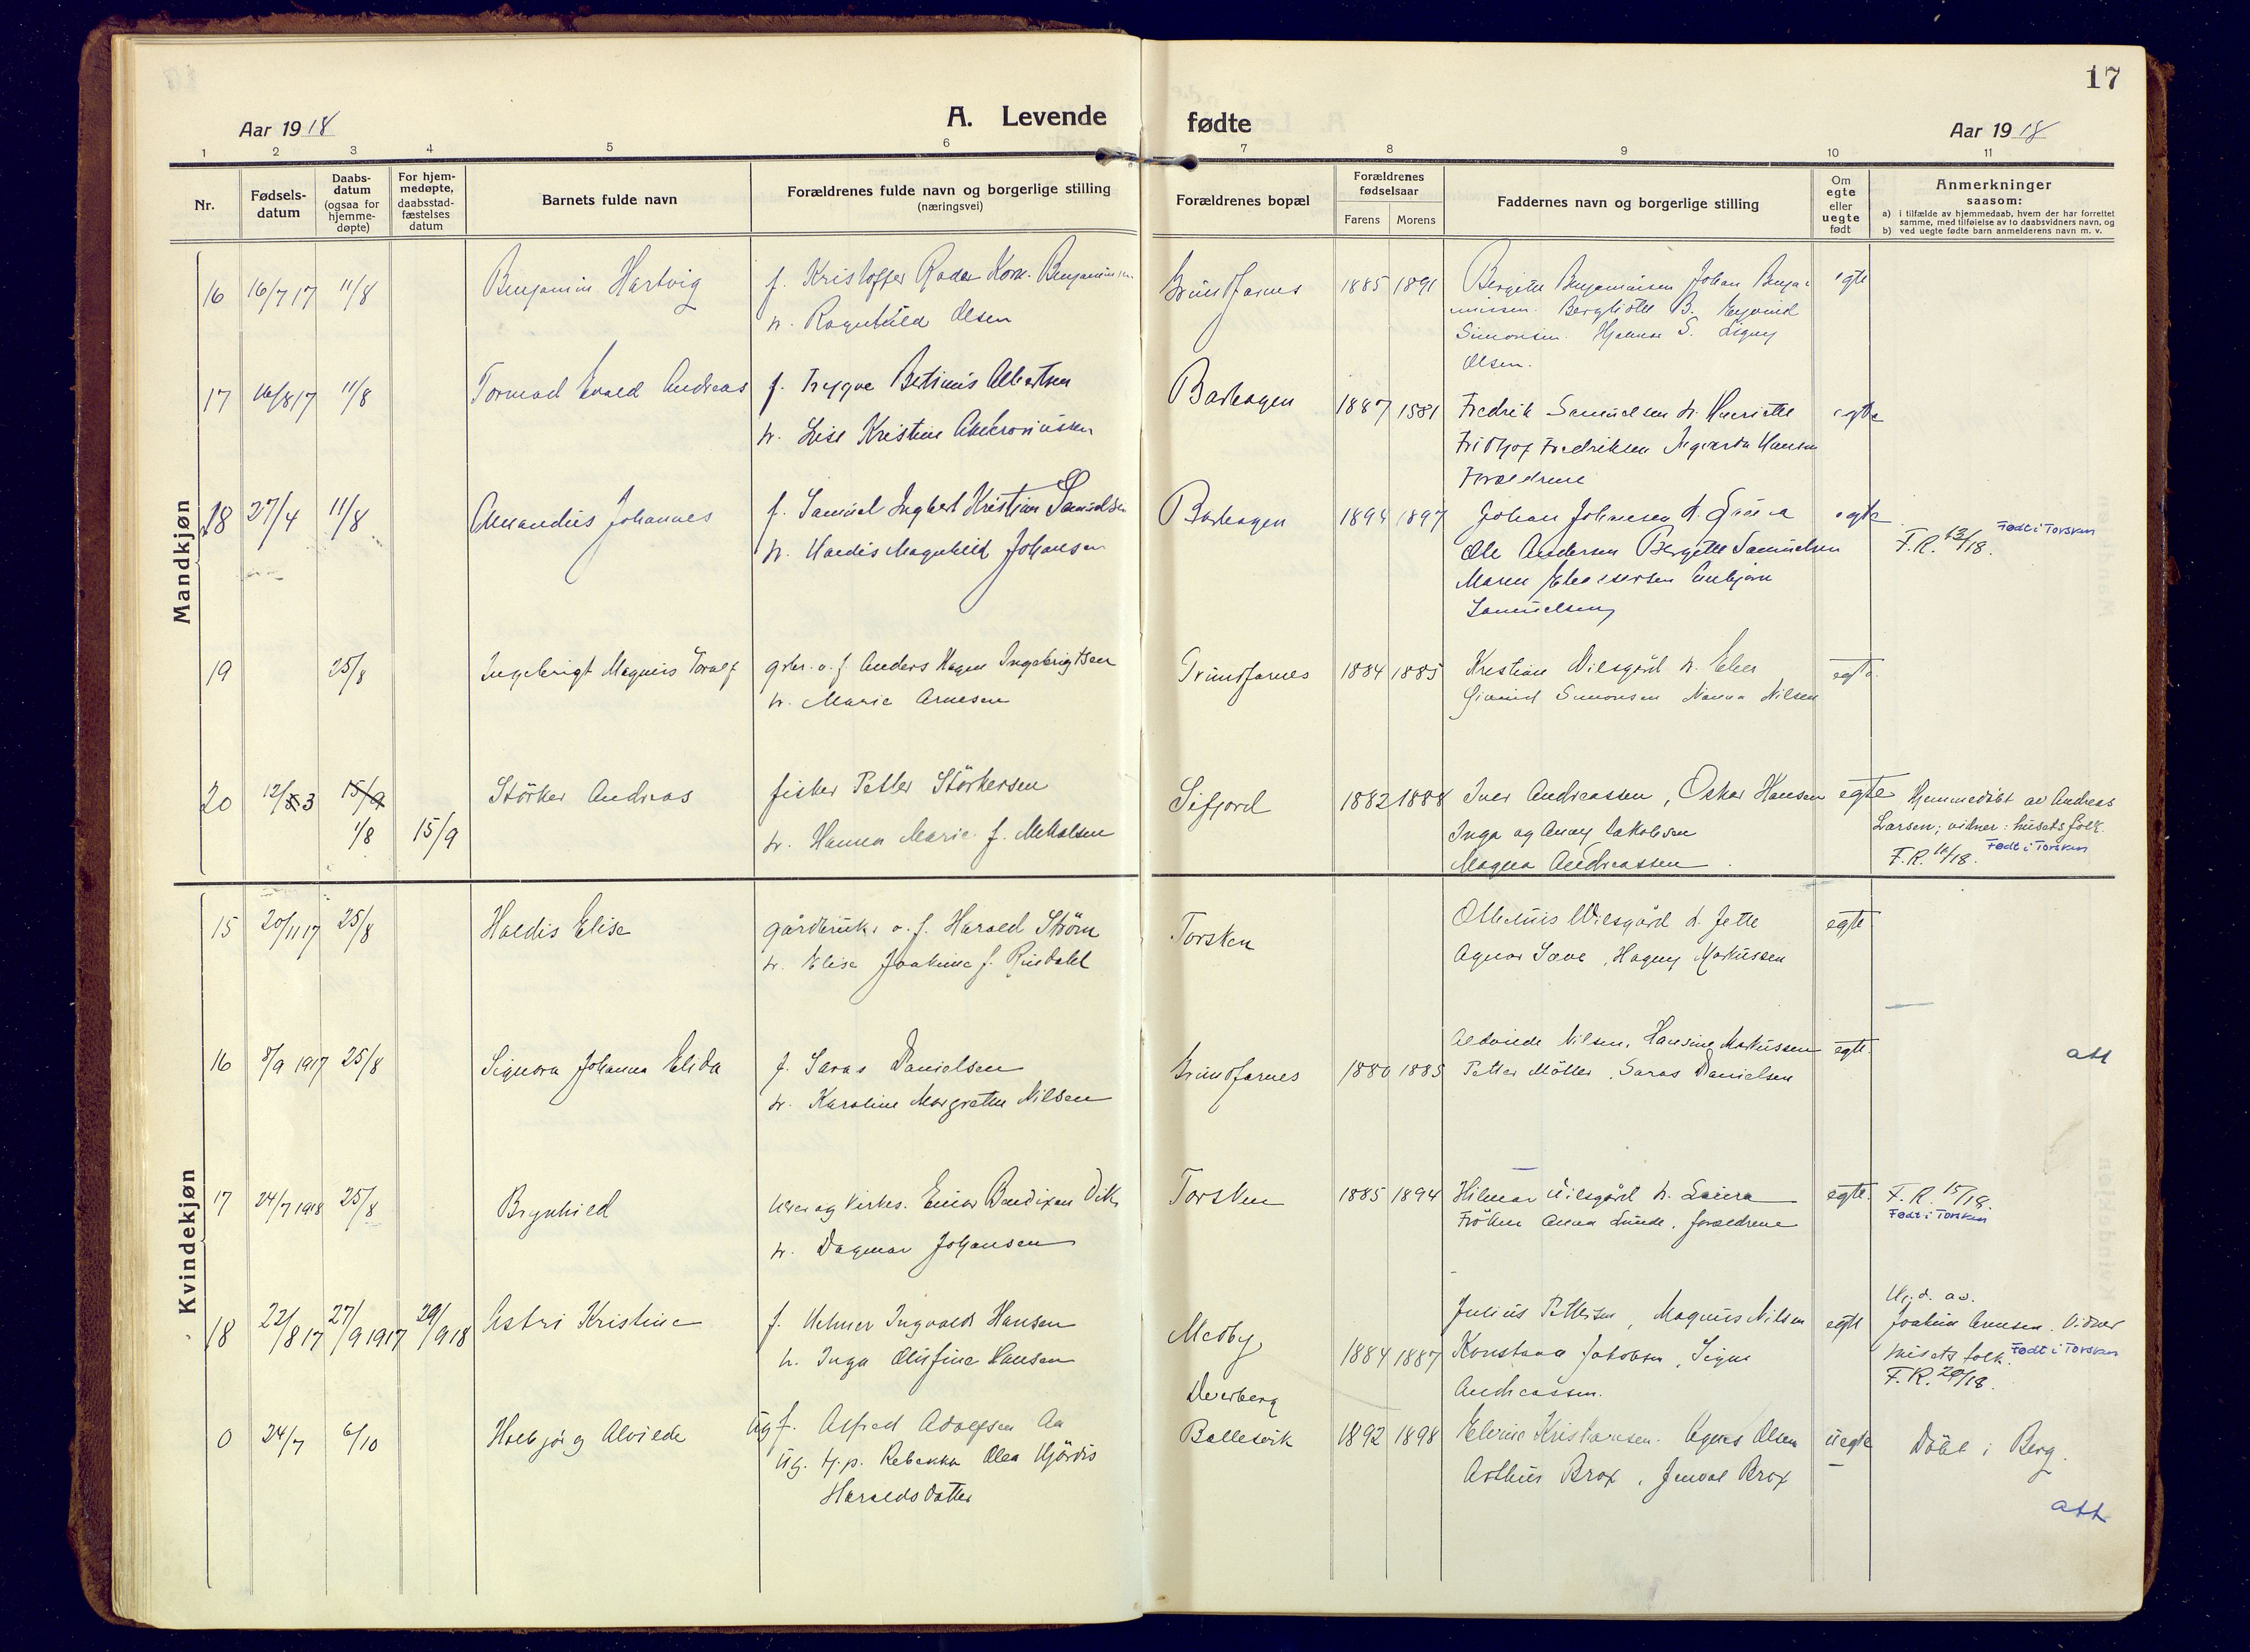 17
Aar 1918
A. Levende fødte
Aar 1918
1 2 3 4 5 6 7 8 9 10 11
Nr.
Fødsels-
datum
Daabs-
datum
(ogsaa for
hjemme-
døpte)
For hjem-
medøpte,
daabsstad-
fæstelses
datum
Barnets fulde navn
Forældrenes fulde navn og borgerlige stilling
(næringsvei)
Forældrenes bopæl
Forældrenes
fødselsaar
Farens Morens
Faddernes navn og borgerlige stilling
Om
egte
eller
uegte
født
Anmerkninger
saasom:
a) i tilfælde av hjemmedaab, hvem der har forrettet
samme, med tilføielse av to daabsvidners navn, og
b) ved uegte fødte barn anmelderens navn m. v.
Mandkjøn
16 16/7 17 11/8 Benjamin Hartvig f. Kristoffer Rader Korn. Benjaminsen
h. Ragnhild Olsen
Grundfarnes 1885 1891 Bergitte Benjaminsen Johan Benja-
minsen. Bergliotte B. Eyvind
Simonsen. Hjalmar S. Signy
Olsen.
egte
17 16/8 17 11/8 Tormod Evald Andreas f. Trygve Bertinus Albertsen
h. Lise Kristine
Barhagen 1887 1881 Fredrik Samuelsen h. Henriette
Fridtjof Fredriksen Ingvarda Hansen
Forældrene
egte
18 27/4 11/8 Amandus Johannes f. Samuel Ingbert Kristian Samuelsen
h. Hardis Magnhild Johansen
Barhagen 1894 1897 Johan Johnesen h.
Ole Andersen Bergitte Samuelsen
Maren
Samuelsen
egte
Født i Torsken
F.R. 13/18.
19 25/8 Ingebrigt Magnus Toralf grbr. o. f. Anders Hagen Ingebrigtsen
h. Marie Arnesen
Grundfarnes 1884 1885 Kristian Vilsgård h. Elen
Eivind Simonsen Nanna Nilsen
egte
20 12/3 15/9 Störker Andreas fisker Petter Störkersen
1/8 15/9 h. Hanna Marie f. Mikalsen
Sifjord 1882 1888 Iver Andreassen, Oskar Hansen
Inga og Anny Jakobsen
Magna Andreassen
egte
Hjemmedöbt av Andreas
Larsen; vidner: husets folk.
Født i Torsken
F.R. 16/18.
Kvindekjøn
15 20/11 17 25/8 Haldis Elise gårdbruk. o. f. Harald Ström
h. Elise Joakime f. Rindahl
Torsken
Vilsgård h. Jette
Agnar Save, Hagny Markussen
egte
16 8/9 1917 25/8 Signora Johanna Elida f. Saras Danielsen
h. Karoline Margrethe Nilsen
Grundfarnes 1880 1885
Alvilde Nilsen, Hansine Markussen
Petter Möller, Saras Danielsen
egte.
att
17 24/7 1918 25/8 Brynhild lærer og kirkes. Einar Bendixen Vik
h. Dagmar Johansen
Torsken 1885 1894 Hilmar Vilsgård h. Laura
Fröken Anna Lunde, forældrene
egte. F.R. 15/18.
Født i Torsken
18 22/8 17 27/9 1917 29/9 18 Astri Kristine f. Helmer Ingvald Hansen
h. Inga Olufine Hansen
Medby 1884 1887
Julius Pettersen, Magnus Nilsen
Konstana Jakobsen, Signe
Andreassen.
egte
Hj.d. av.
Joakim Arnesen. Vidner
husets folk. Født i Torsken
F.R. 20/18.
0 24/7 6/10 Halbjörg Alvilde Ug f. Alfred Adolfsen Aa
Ug. tj.p. Rebekka Olea Hjördis
Haraldsdatter
Deverberg
Ballesvik 1892 1898 Elvine Kristiansen. Agnes Olsen
Arthur Brox, Jenval Brox
uegte
Döbt i Berg.
att